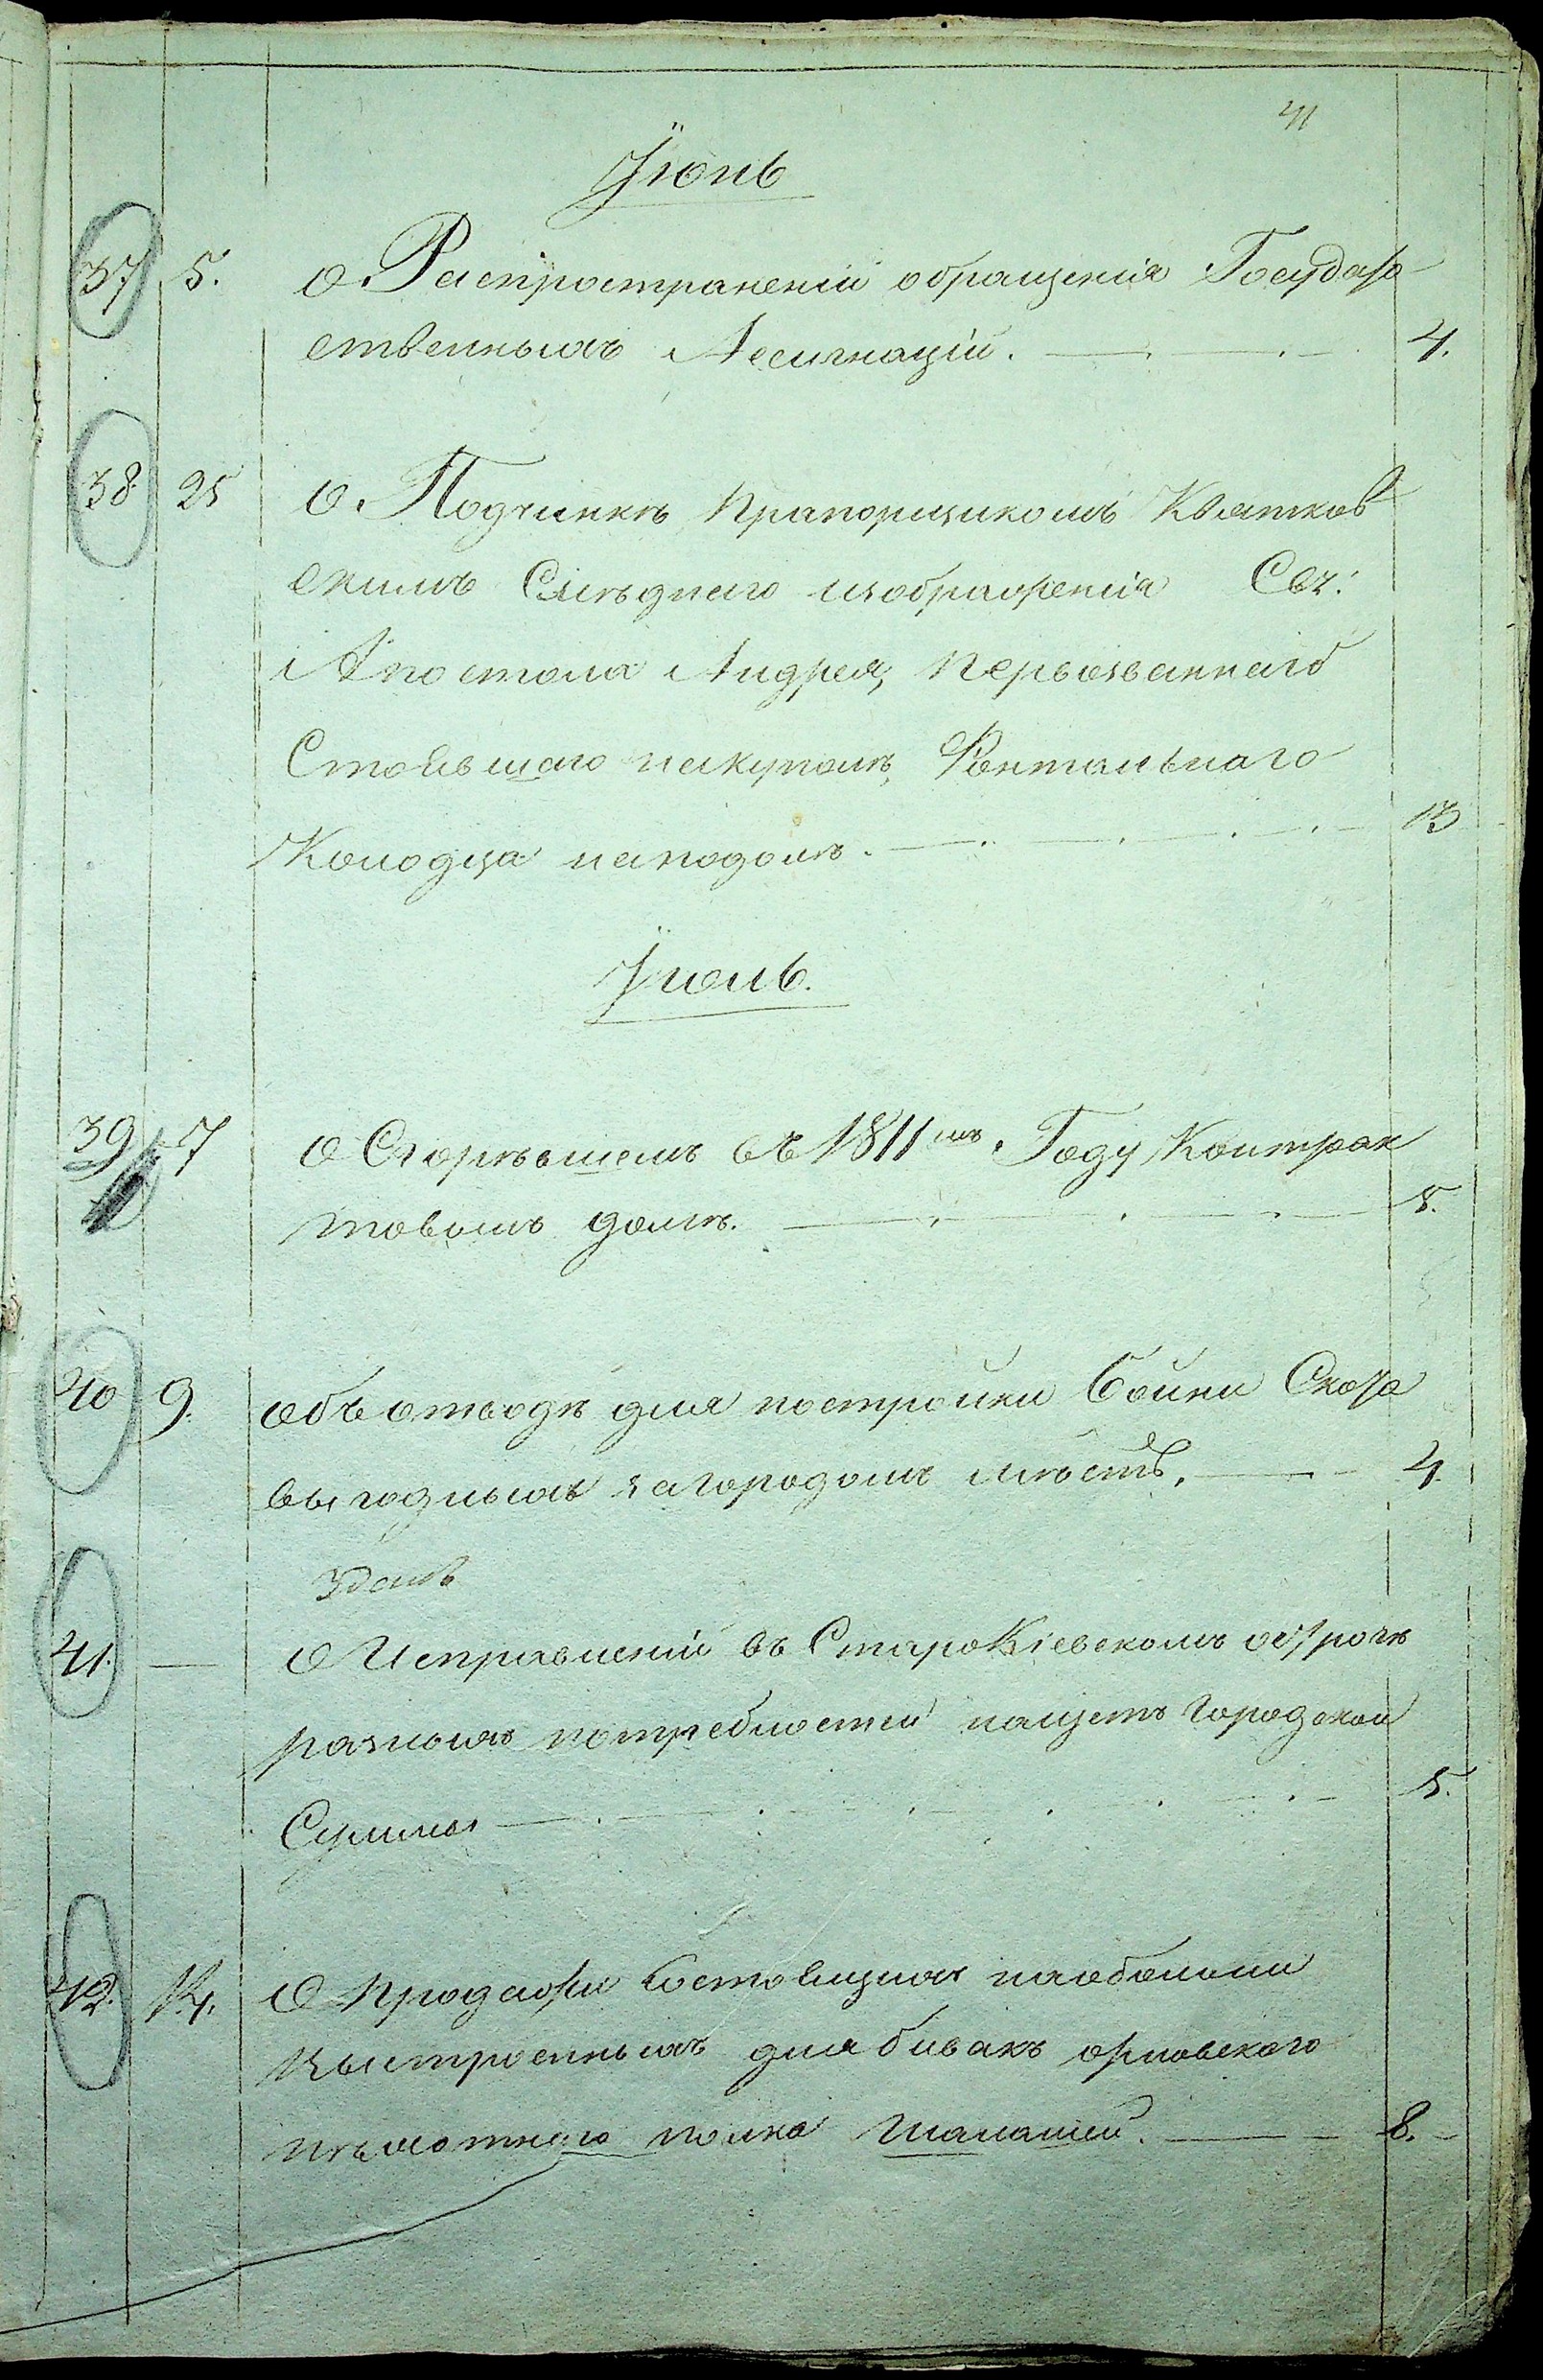 41
Июнь
37 5. О Распространеніи обращенія Государ-
ственныхъ Ассигнацій. 4.
38 25 О Подчинкѣ Прапорщикомъ Квятков
скимъ Смѣднаго изображенія Свт:
Апостола Андрея, Первозваннаго
Стоявшаго накуполѣ, Фонтальнаго
Колодца наподолѣ. 13
Июль.
39 7 О Сгорѣвшемъ въ 1811мъ Году Контрак
товомъ домѣ. 5.
40 9. объ отводѣ для постройки Бойни Скота
выгодныхъ загородомъ мѣстъ. 4.
Здань
41. — О Исправленіи въ СтароКіевскомъ острогѣ
разныхъ потребностей нащетъ Городской
Суммы 5.
42. 14. О Продажи Состоящихъ наоболони
выстроенныхъ для бивакъ орловскаго
пѣхотнаго полка Шалашей. 8.